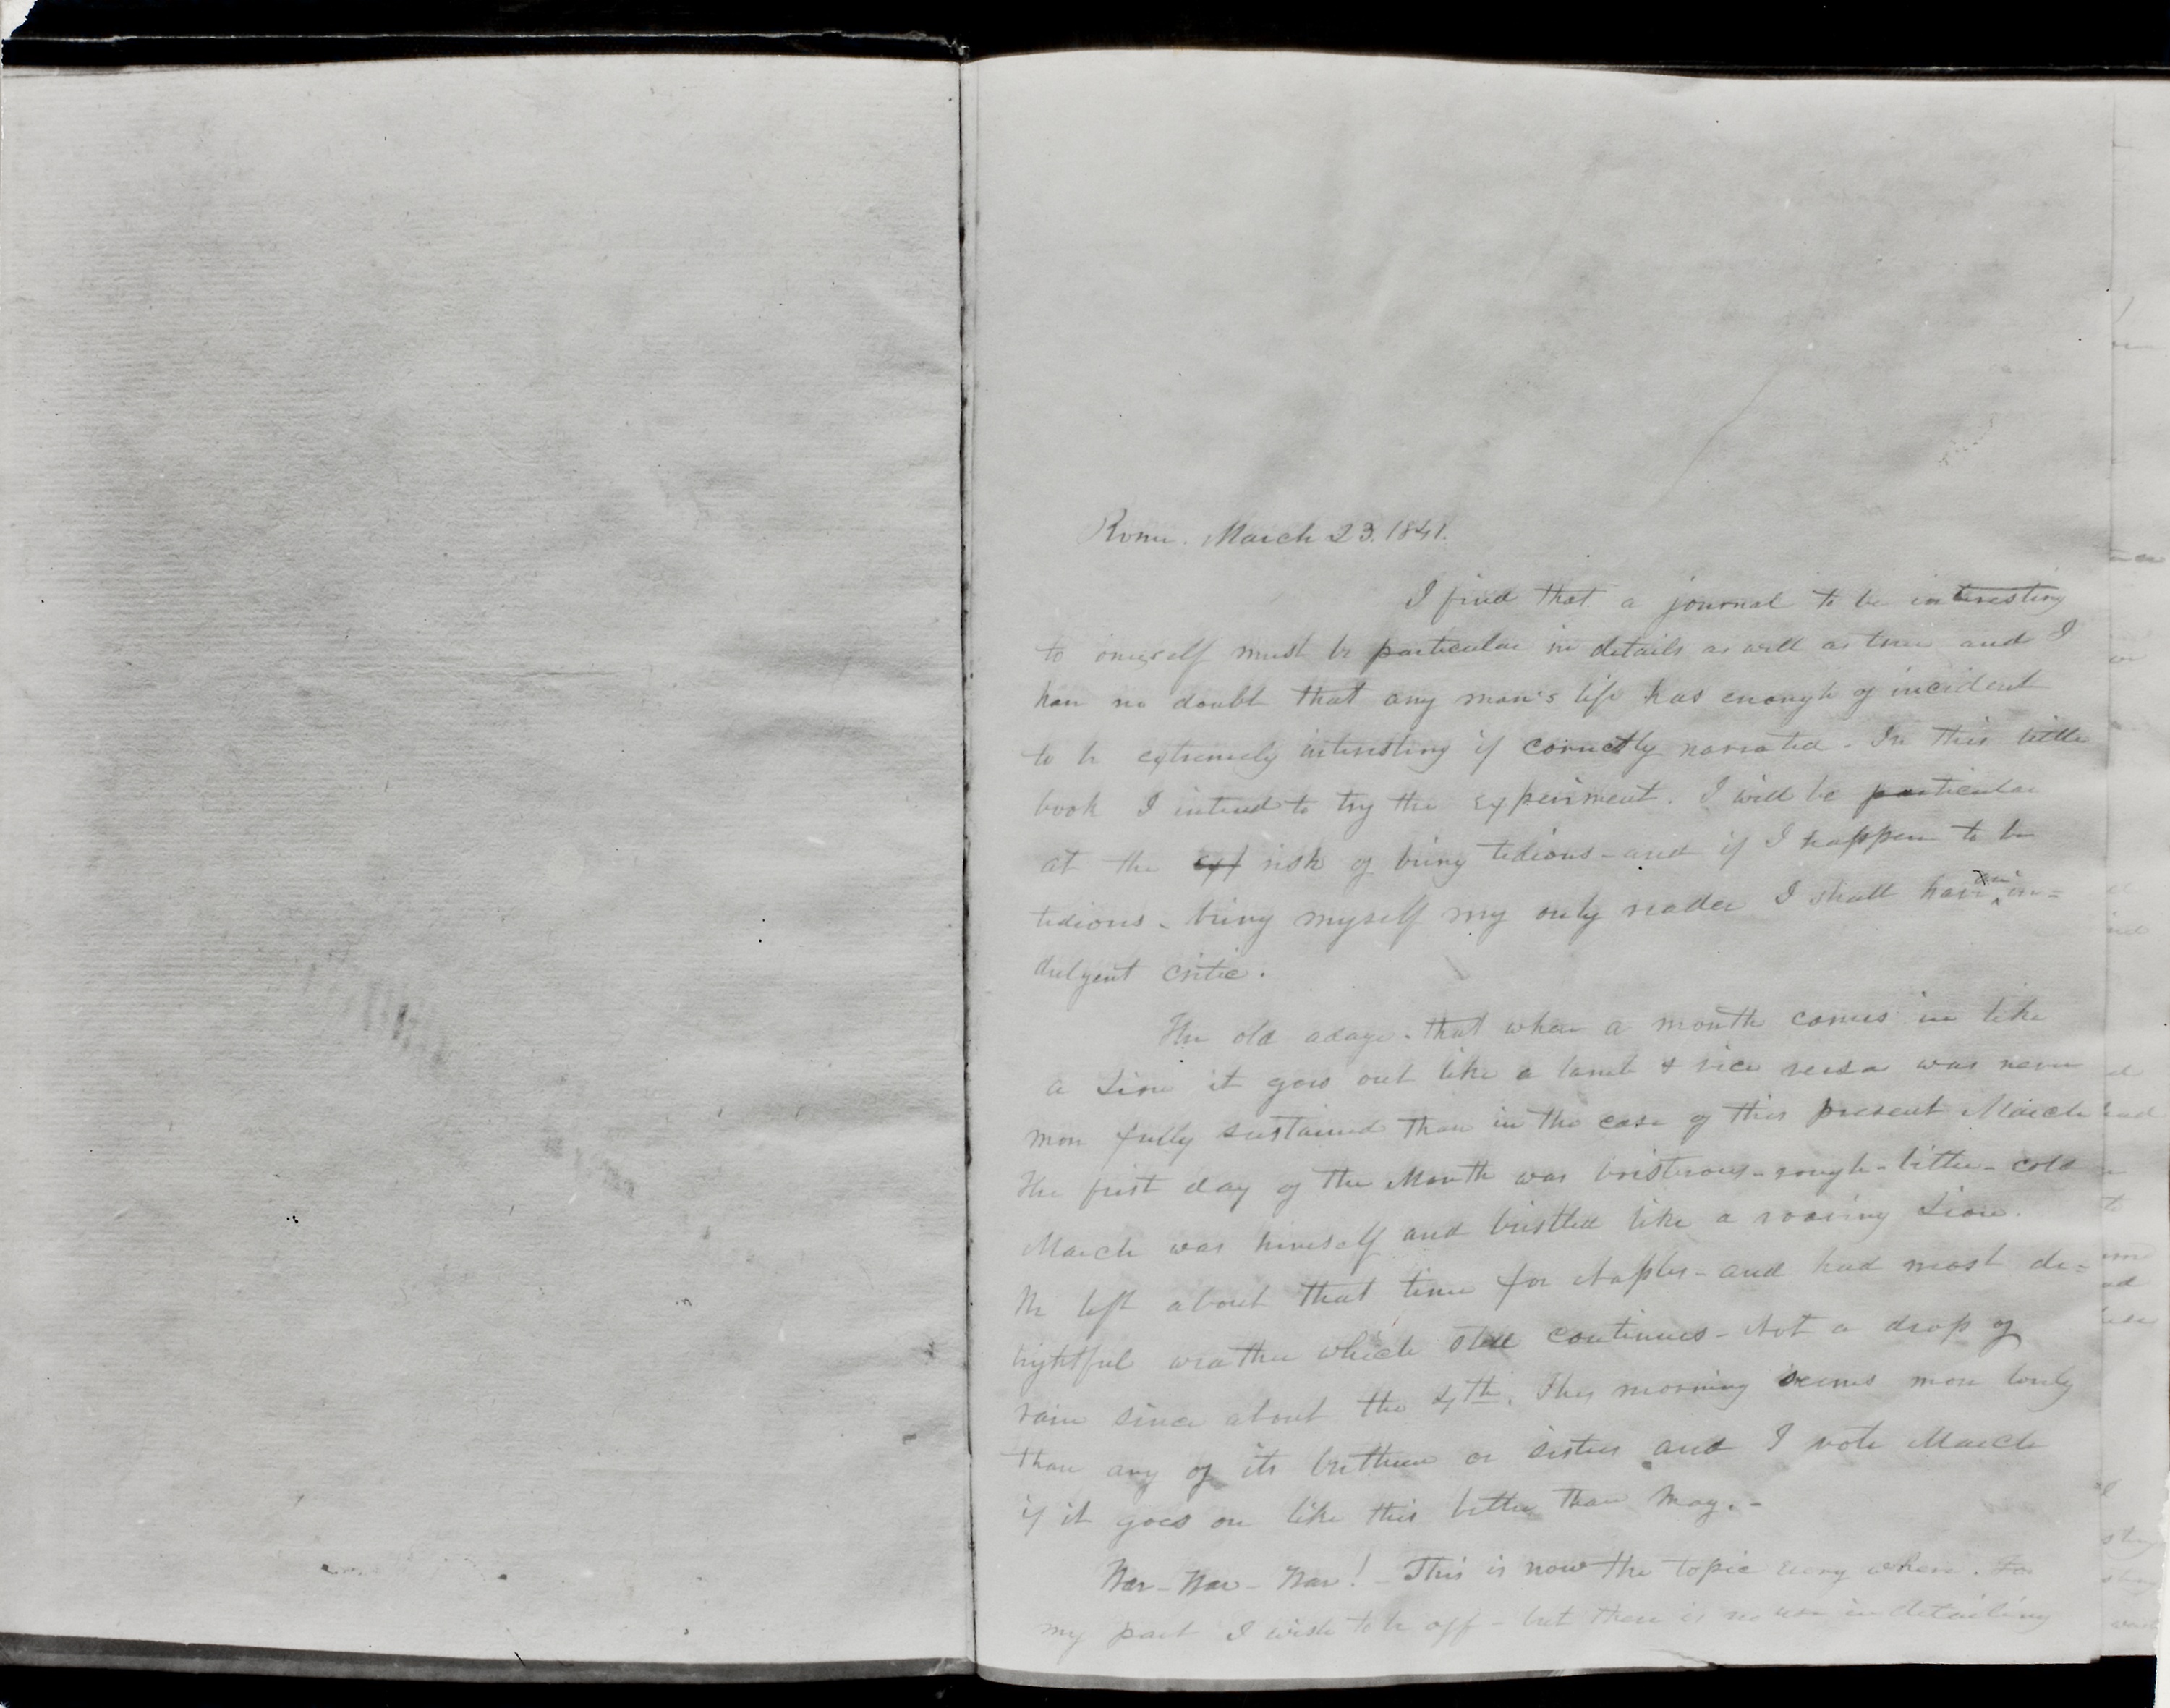 Rome. March 23. 1841.
I find that a journal to be interesting
to oneself must be particular in details as well as true and I
have no doubt that any man's life has enough of incident
to be extremely interesting if correctly narrated. In this little
book I intend to try the experiment. I will be particular
at the exp risk of being tedious - and if I happen to be
tedious - being myself my only reader I shall have an in=
dulgent critic.
The old adage - that when a month comes in like
a Lion it goes out like a lamb & vice versa was never
more fully sustained than in the case of this present March
The first day of the Month was boisterous - rough - bitter - cold
March was himself and bristled like a roaring Lion.
We left about that time for Naples - and had most de=
lightful weather which still continues - Not a drop of
rain since about the 4th. This morning seems more lovely
than any of its brethren or sisters and I vote March
if it goes on like this better than May. -
War - War - War! - This is now the topic every where. For
my part I wish to be off - but there is no use in detailing